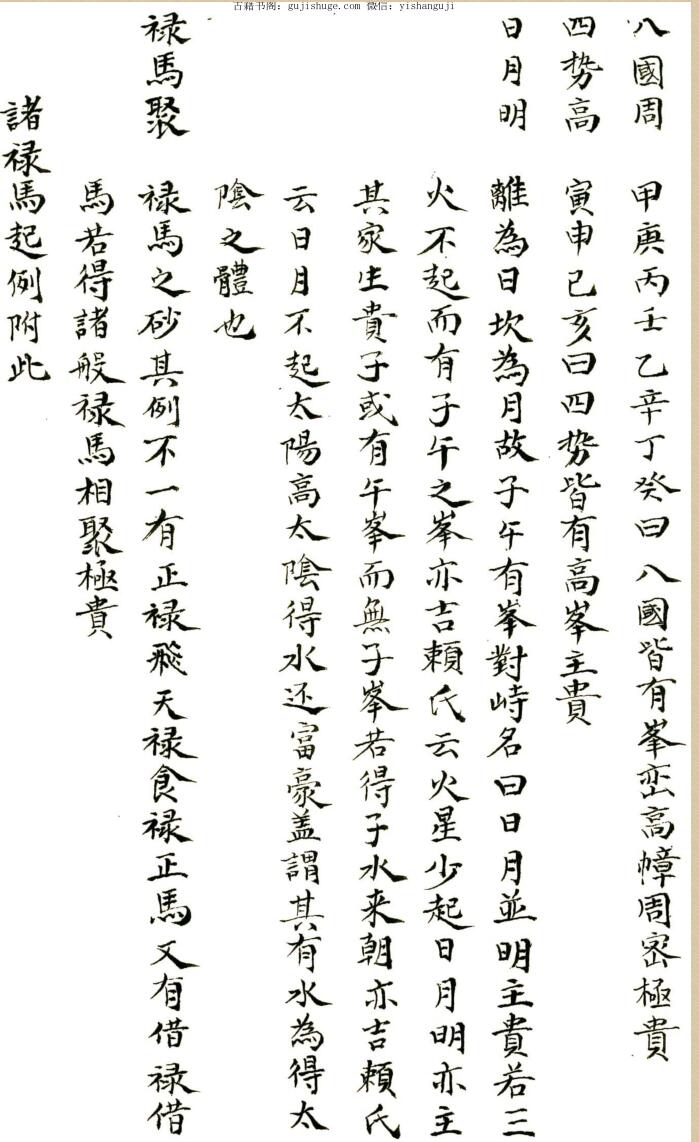 古籍书阁：gujishuge.com 微信：yishanguji
八國周　甲庚丙壬乙辛丁癸曰八國皆有峯巒高幛周密極貴
四势高　寅申巳亥曰四势皆有高峯主貴
日月明　離為日坎為月故子午有峯對峙名曰日月並明主貴若三
火不起而有子午之峯亦吉頼氏云火星少起日月明亦主
其家生貴子或有午峯而無子峯若得子水来朝亦吉頼氏
云日月不起太陽高太陰得水还富豪盖謂其有水為得太
陰之體也
禄馬聚　禄馬之砂其例不一有正禄飛天禄食禄正馬又有借禄借
馬若得諸般禄馬相聚極貴
諸禄馬起例附此